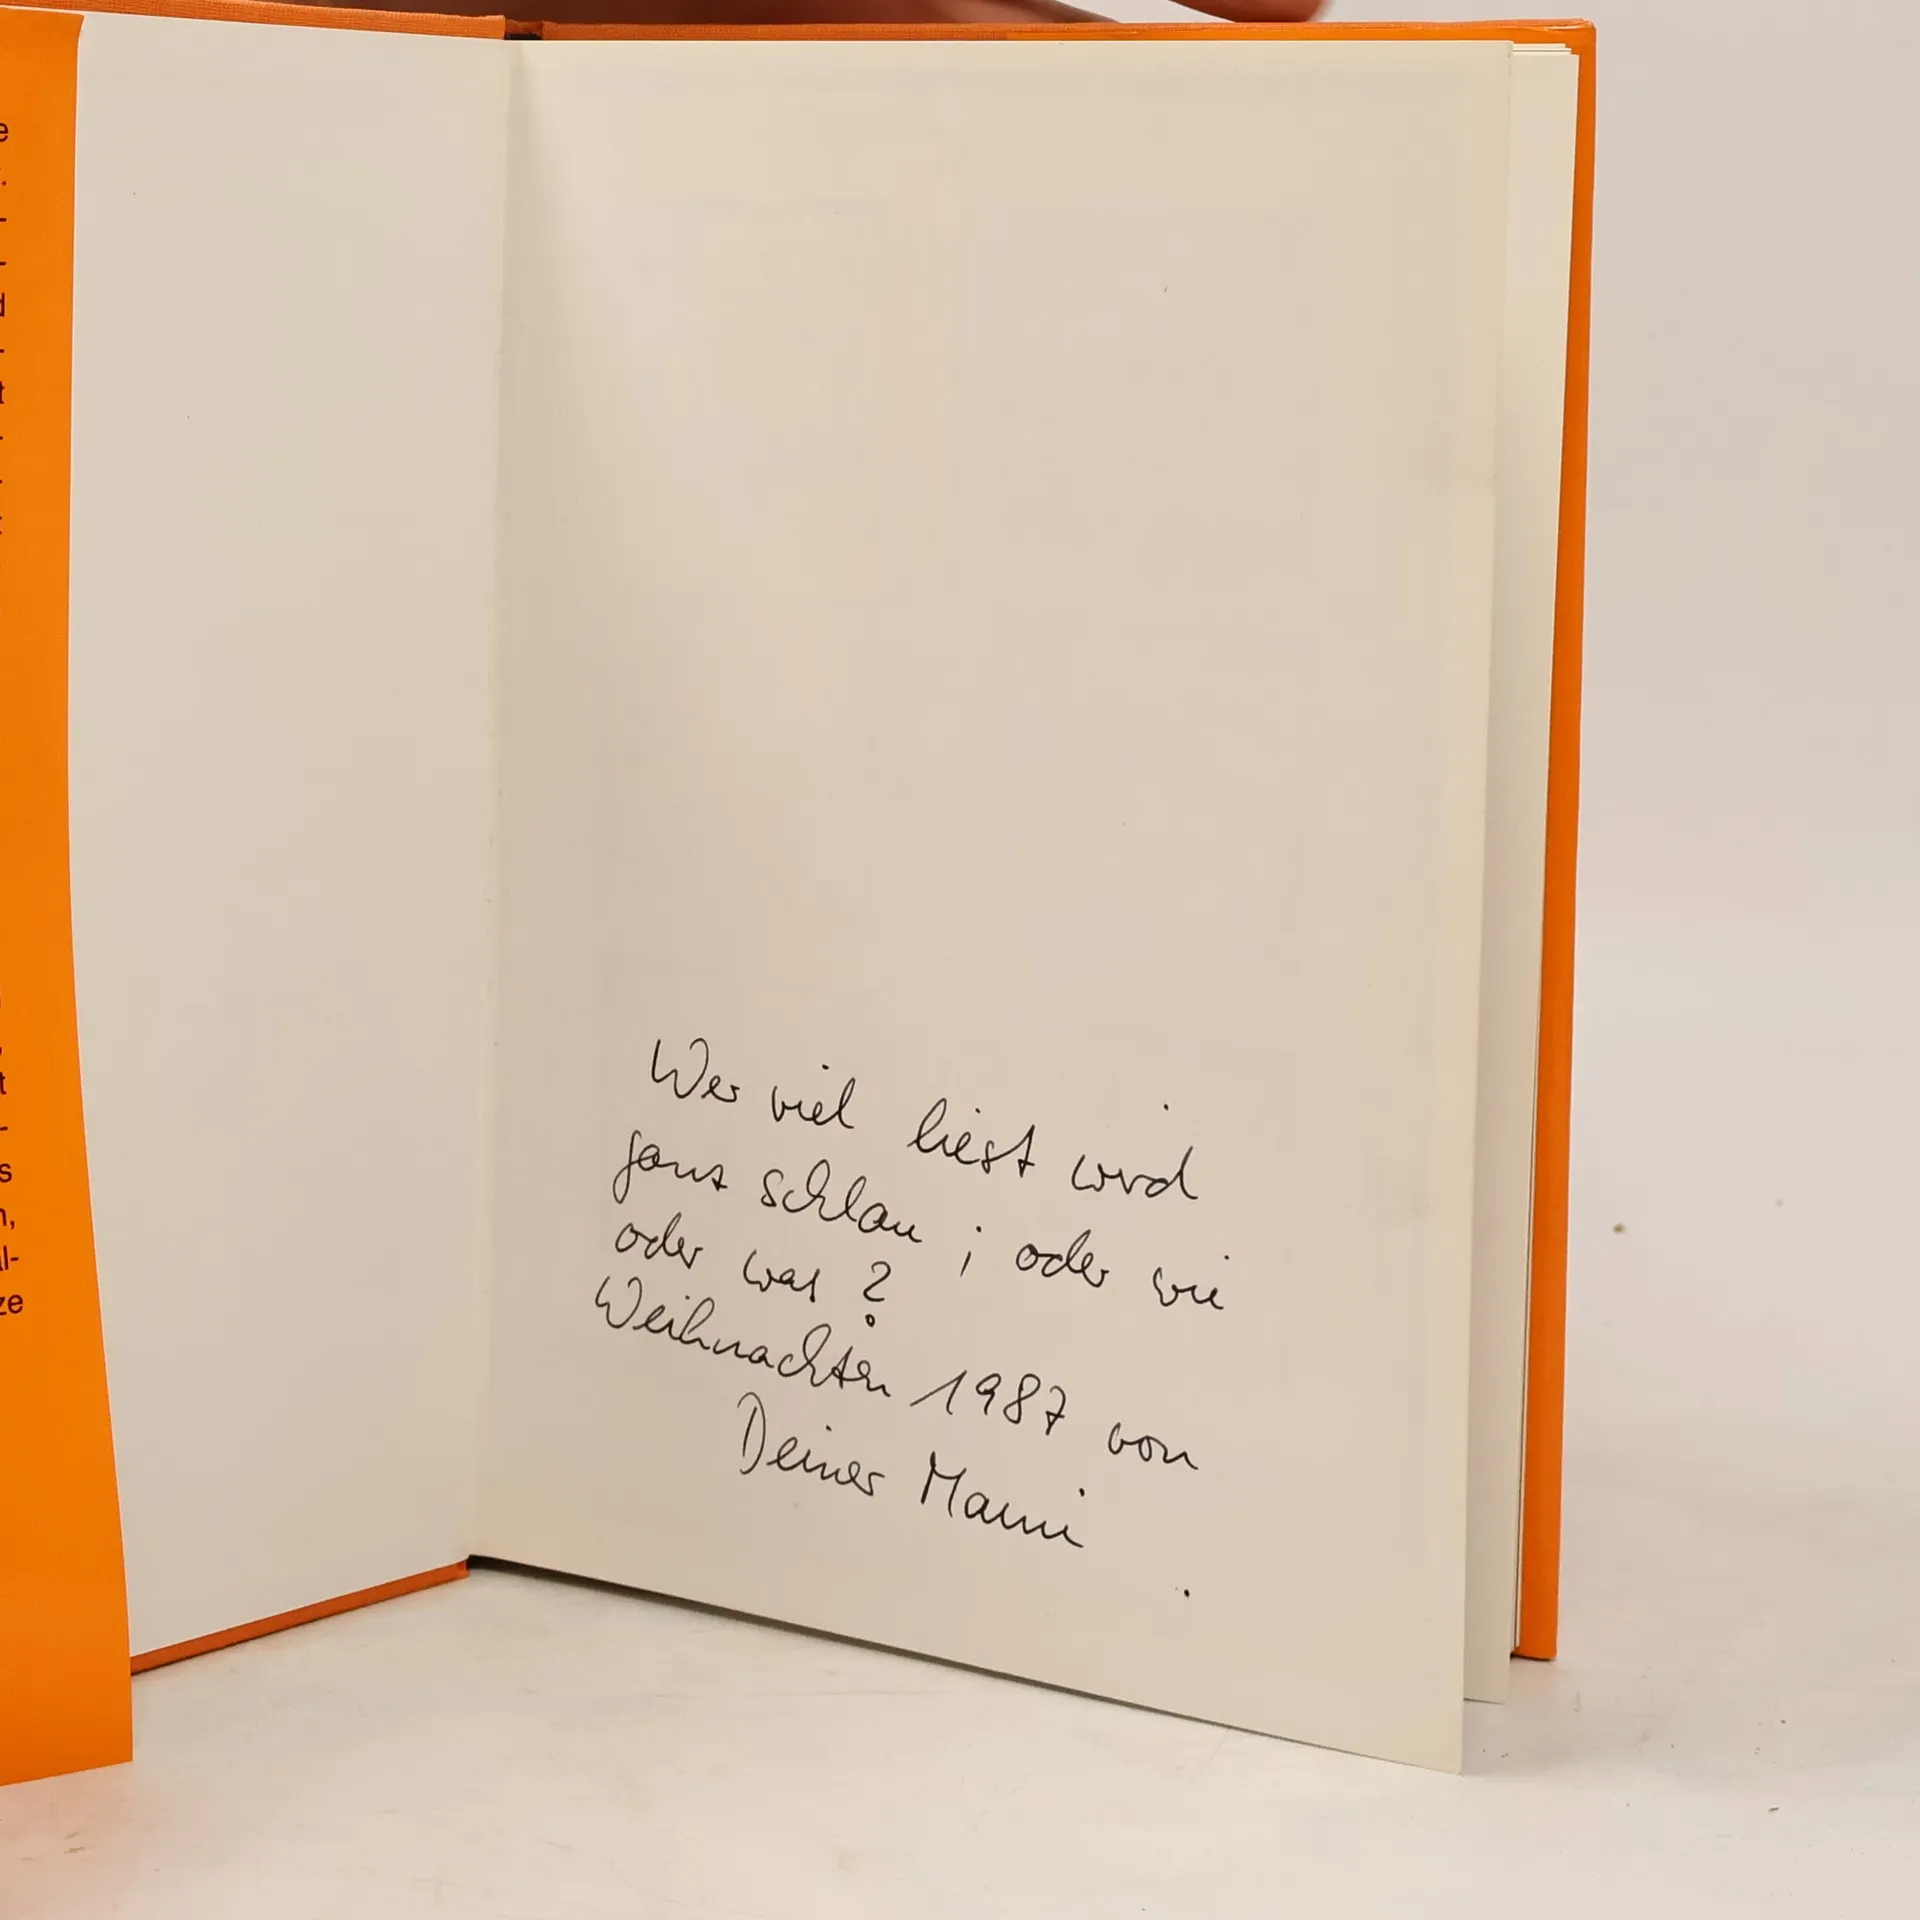 Wer viel liest wird
ganz schlau ; oder wie
oder was ?
Weihnachten 1987 von
Deiner Mami